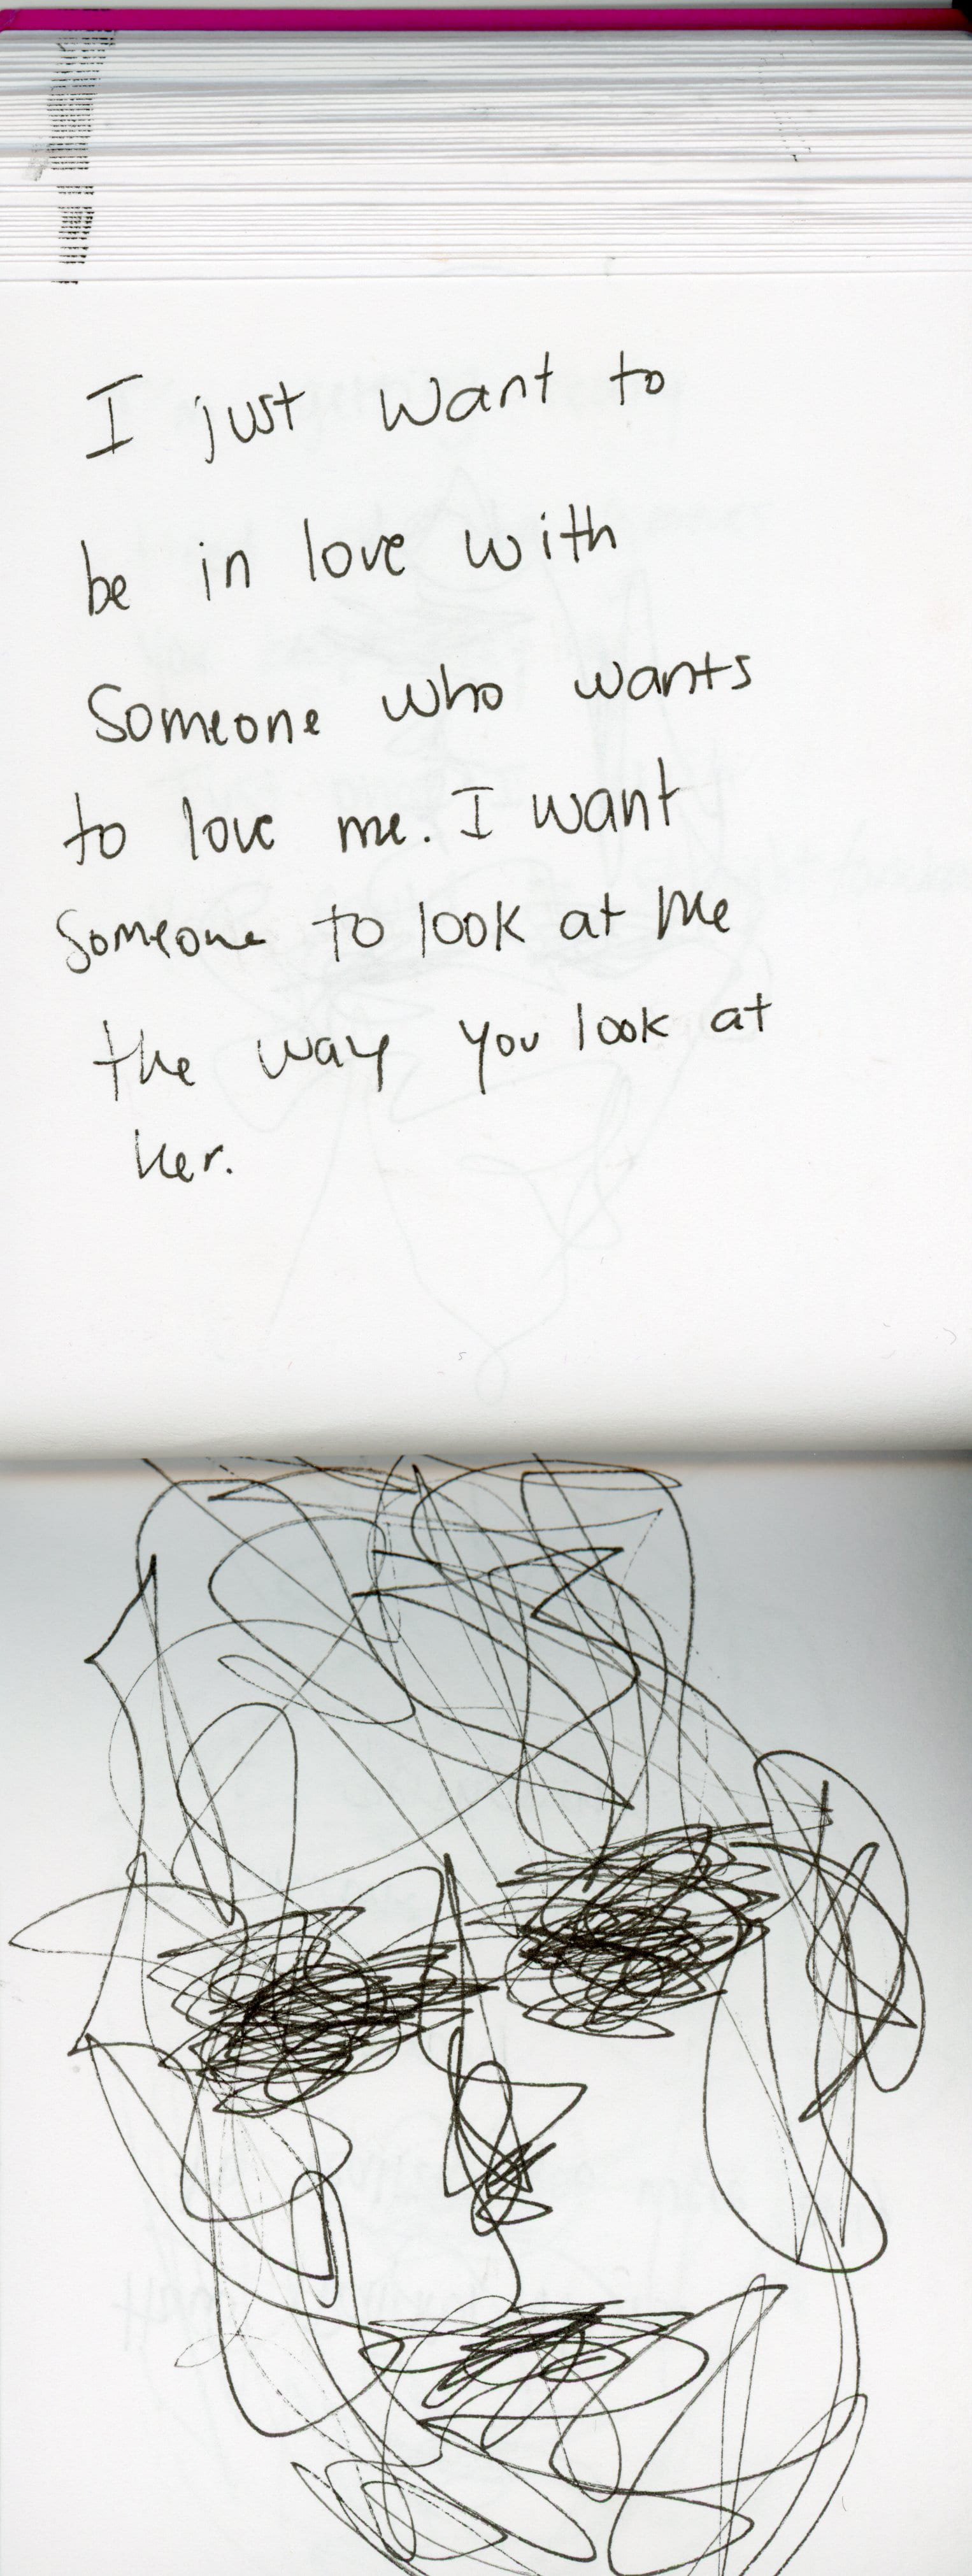 I just want to
be in love with
Someone who wants
to love me. I want
Someone to look at me
the way you look at
her.